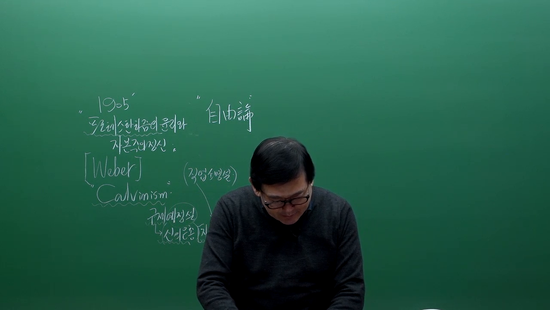 1905
"프로테스탄티즘의 윤리와
자본주의정신.
"自由論"
[Weber]
Calvinism"
(직업소명설)
구제예정설